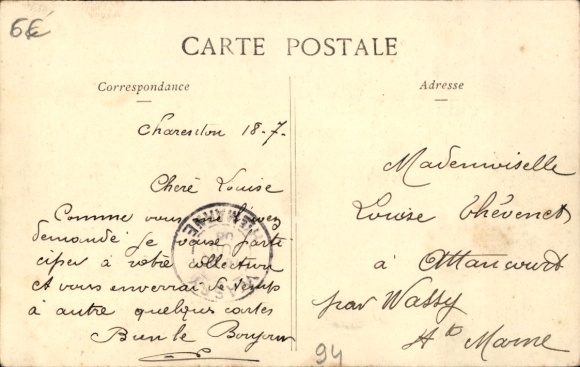 6€
CARTE POSTALE
Correspondance
Adresse
Charenton 18-7-
Cheré Louise
Comme vous me l'avez
demandé je vais parti
ciper à votre collection
et vous enverrai de temps
à autre quelques cartes
Bien le Bonjour
HTE MARNE
WASSY
Mademoiselle
Louise Thévenet
à Attancourt
par Wassy
Hte Marne
94